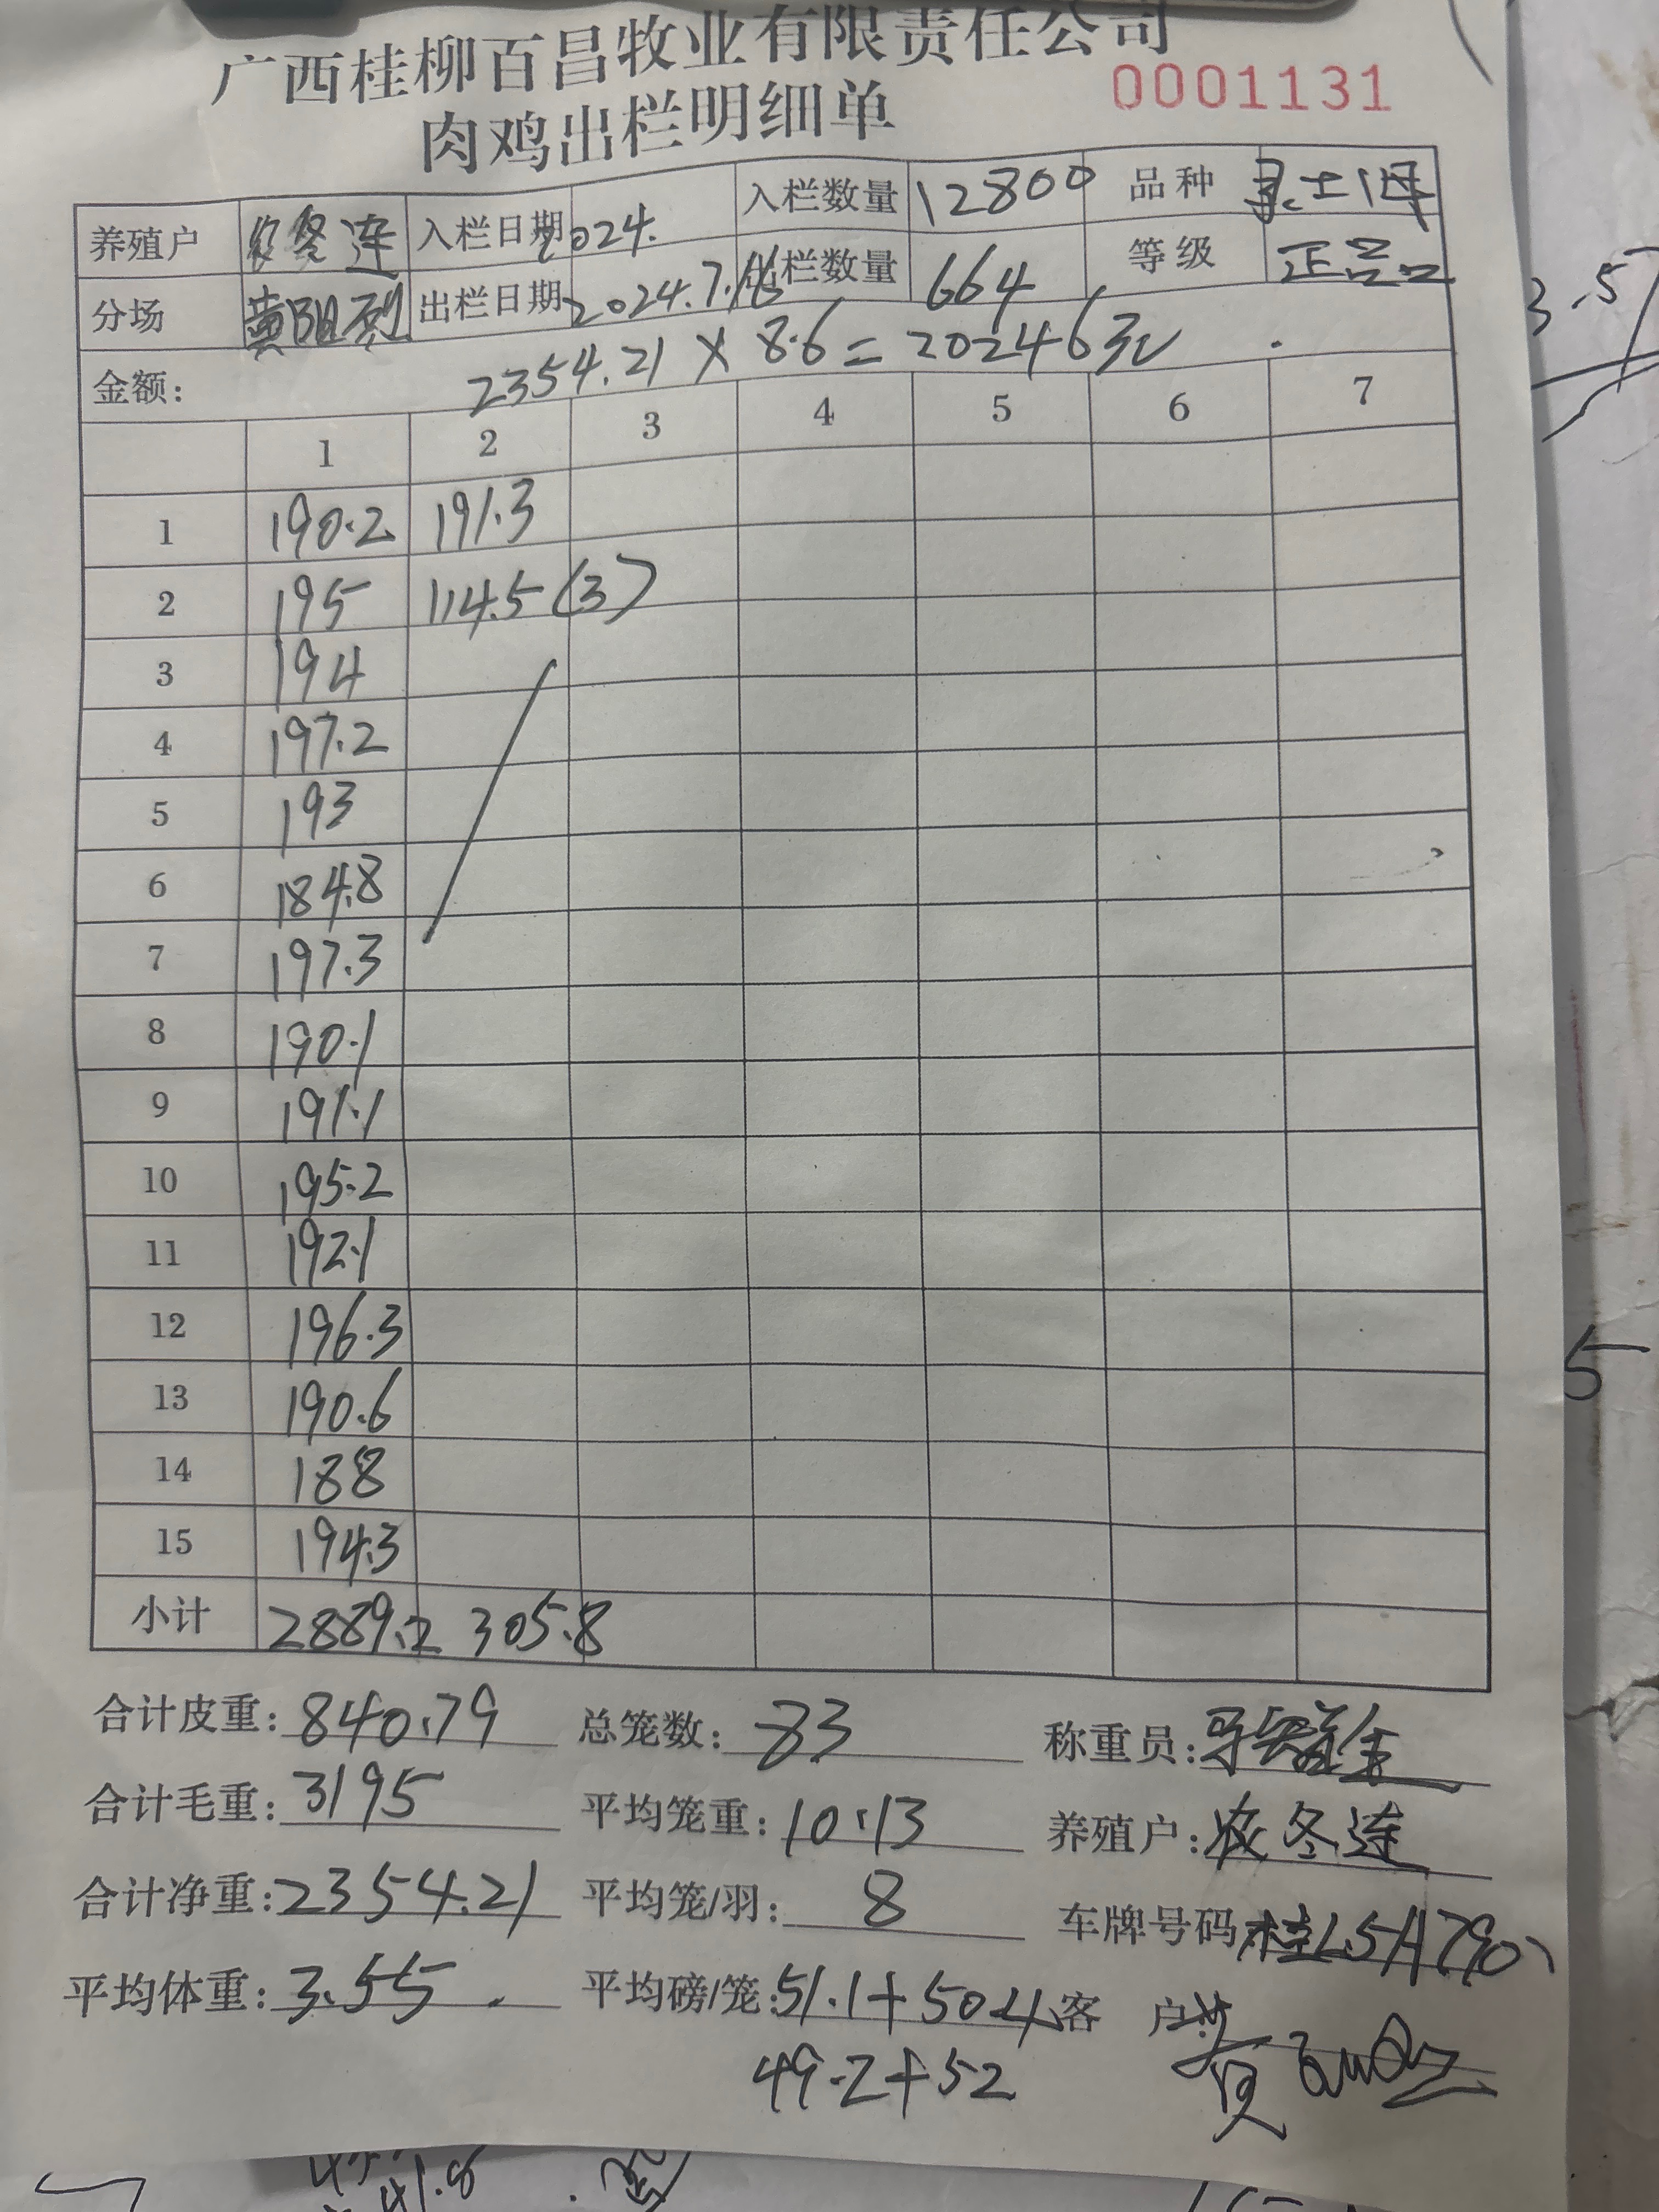 广西桂柳百昌牧业有限责任公司
肉鸡出栏明细单 0001131
养殖户 农冬连 入栏日期 2024. 入栏数量 12800 品种 土1母
分场 黄阳烈 出栏日期 2024.7.16 栏数量 664 等级 正品
金额: 2354.21 × 8.6 = 20246元
1 2 3 4 5 6 7
1 190.2 191.3
2 195 114.5 (3)
3 194
4 197.2
5 193
6 184.8
7 197.3
8 190.1
9 191.1
10 195.2
11 192.1
12 196.3
13 190.6
14 188
15 194.3
小计 2889.2 305.8
合计皮重: 840.79 总笼数: 83 称重员:
合计毛重: 3195 平均笼重: 10.13 养殖户: 农冬连
合计净重: 2354.21 平均笼/羽: 8 车牌号码 桂L5H790
平均体重: 3.55 平均磅/笼: 51.1+50.4 客 户: 黄
49.2+52
3.5
5
41.8